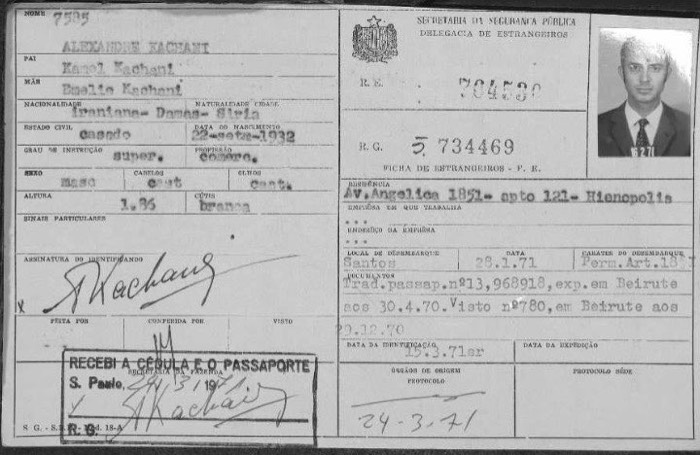 NOME 7585
ALEXANDRE KACHANI
PAI
Kamel Kachani
MÃE
Emelie Kachani
NACIONALIDADE NATURALIDADE CIDADE
iraniana- Damas- Siria
ESTADO CIVIL DATA DO NASCIMENTO
casado 22-setm-1932
GRAU DE INSTRUÇÃO PROFISSÃO
super. comerc.
SEXO CABELOS OLHOS
masc cast cast.
ALTURA CÚTIS
1.86 branca
SINAIS PARTICULARES
ASSINATURA DO IDENTIFICANDO
x AKachani
FEITA POR CONFERIDA POR VISTO
SECRETARIA DA FAZENDA
RECEBI A CÉDULA E O PASSAPORTE
S. Paulo, 24/3/1971
x AKachani
R. G.
18-A
SECRETARIA DA SEGURANÇA PÚBLICA
DELEGACIA DE ESTRANGEIROS
R. E. 704530
R. G. 5. 734469
FICHA DE ESTRANGEIROS - P. E.
RESIDÊNCIA
Av.Angelica 1851- apto 121- Hienopolis
EMPRÊSA EM QUE TRABALHA
***
ENDERÊÇO DA EMPRÊSA
***
LOCAL DE DESEMBARQUE DATA CARATER DO DESEMBARQUE
Santos 28.1.71 Perm.Art.
DOCUMENTOS
Trad.passap.nº13,968918,exp.em Beirute
aos 30.4.70.Visto nº780,em Beirute aos
29.12.70
DATA DA IDENTIFICAÇÃO DATA DA EXPEDIÇÃO
15.3.71er
ÓRGÃOS DE ORIGEM PROTOCOLO SÉDE
PROTOCOLO
24-3-71